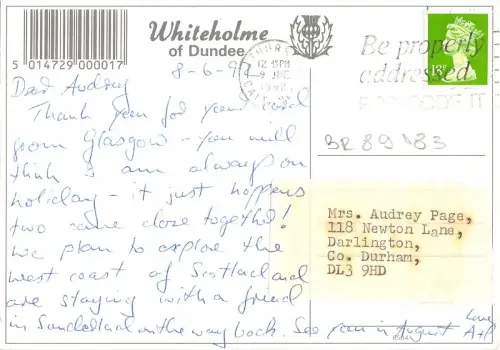 Whiteholme
of Dundee
5 014729 000017
8-6-92
12 15PM
9 JNE
1992
Be properly
addressed
POSTCODE IT
BR 89 083
Dear Audrey
Thank you for your card
from Glasgow - you will
think I am always on
holiday - it just happens
two came close together!
We plan to explore the
west coast of Scotland and
are staying with a friend
in Sunderland on the way back. See you in August Love
A+H
Mrs. Audrey Page,
118 Newton Lane,
Darlington,
Co. Durham,
DL3 9HD